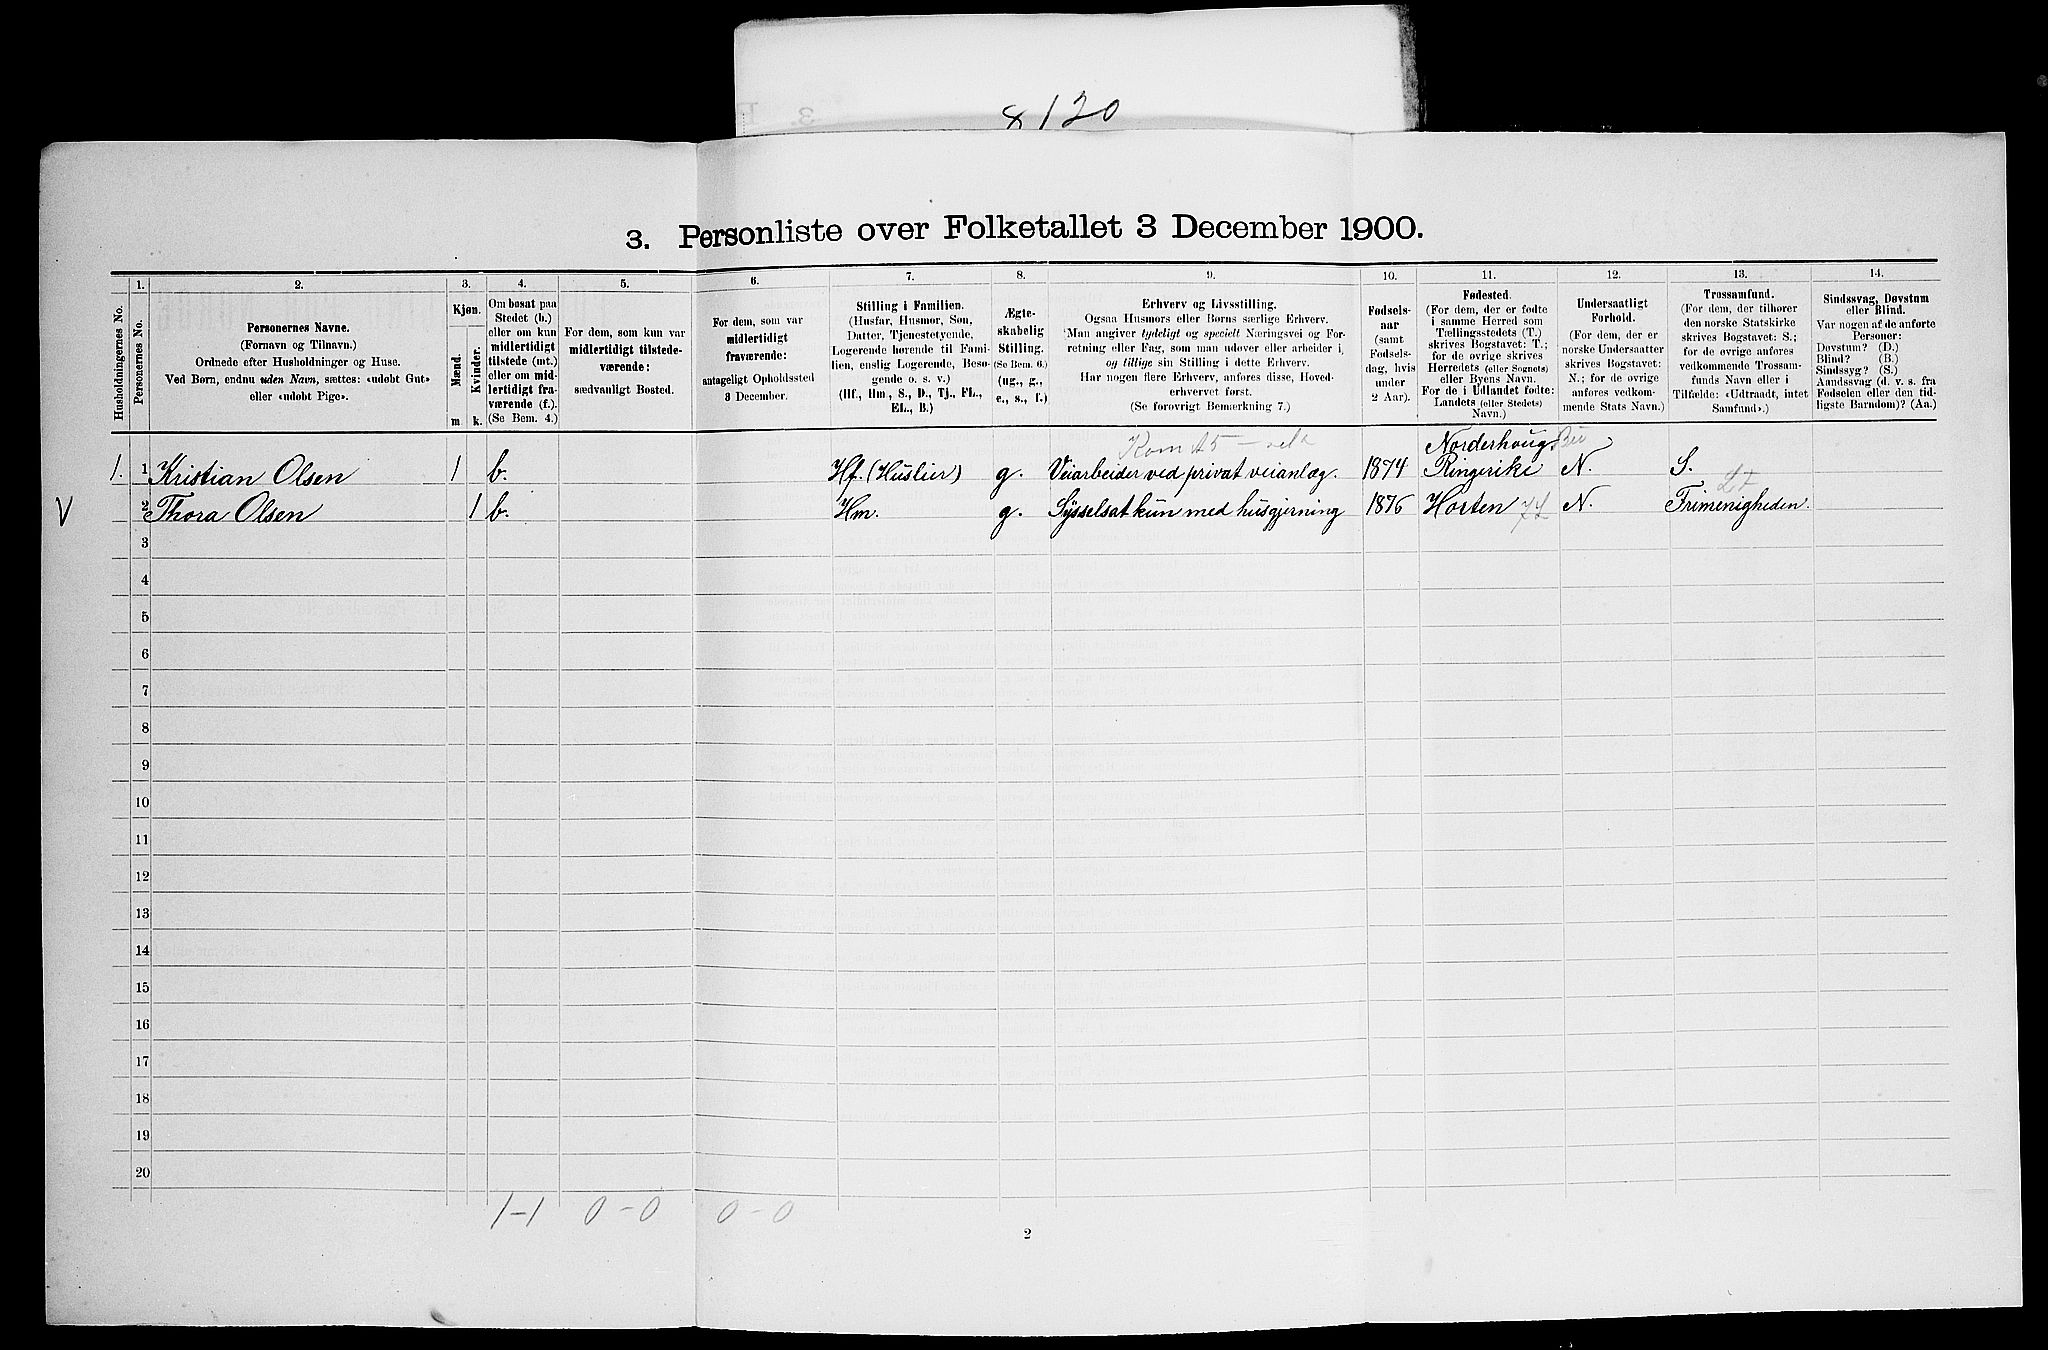 8120
3. Personliste over Folketallet 3 December 1900.
Husholdningernes No.
1.
Personernes No.
2.
Personernes Navne.
(Fornavn og Tilnavn.)
Ordnede efter Husholdninger og Huse.
Ved Børn, endnu uden Navn, sættes: «udøbt Gut»
eller «udøbt Pige».
3.
Kjøn.
Mænd.
Kvinder.
m.
k.
4.
Om bosat paa
Stedet (b.)
eller om kun
midlertidigt
tilstede (mt.)
eller om mid-
lertidigt fra-
værende (f.).
(Se Bem. 4.)
5.
For dem, som kun var
midlertidigt tilstede-
værende:
sædvanligt Bosted.
6.
For dem, som var
midlertidigt
fraværende:
antageligt Opholdssted
3 December.
7.
Stilling i Familien.
(Husfar, Husmor, Søn,
Datter, Tjenestetyende,
Logerende hørende til Fami-
lien, enslig Logerende, Besø-
gende o. s. v.)
(Hf., Hm., S., D., Tj., FL.,
EL., B.)
8.
Ægte-
skabelig
Stilling.
(Se Bem. 6.)
(ug., g.,
e., s., f.)
9.
Erhverv og Livsstilling.
Ogsaa Husmors eller Børns særlige Erhverv.
Man angiver tydeligt og specielt Næringsvei og For-
retning eller Fag, som man udøver eller arbeider i,
og tillige sin Stilling i dette Erhverv.
Har nogen flere Erhverv, anføres disse, Hoved-
erhvervet først.
(Se forøvrigt Bemærkning 7.)
10.
Fødsels-
aar
(samt
Fødsels-
dag, hvis
under
2 Aar).
11.
Fødested.
(For dem, der er fødte
i samme Herred som
Tællingsstedets (T.)
skrives Bogstavet: T.;
for de øvrige skrives
Herredets (eller Sognets)
eller Byens Navn.
For de i Udlandet fødte:
Landets (eller Stedets)
Navn.)
12.
Undersaatligt
Forhold.
(For dem, der er
norske Undersaatter
skrives Bogstavet:
N.; for de øvrige
anføres vedkom-
mende Stats Navn.)
13.
Trossamfund.
(For dem, der tilhører
den norske Statskirke
skrives Bogstavet: S.;
for de øvrige anføres
vedkommende Trossam-
funds Navn eller i
Tilfælde: «Udtraadt, intet
Samfund».)
14.
Sindssvag, Døvstum
eller Blind.
Var nogen af de anførte
Personer:
Døvstum? (D.)
Blind? (B.)
Sindssyg? (S.)
Aandssvag (d. v. s. fra
Fødselen eller den tid-
ligste Barndom)? (Aa.)
Norderhoug Bu
1. 1 Kristian Olsen 1 b. Hf. (Huslier) g. Veiarbeider ved privat veianlæg. 1874 Ringerike N. S.
V 2 Thora Olsen 1 b. Hm. g. Sysselsat kun med husgjerning 1876 Horten N. Frimenigheden.
3
4
5
6
7
8
9
10
11
12
13
14
15
16
17
18
19
20
1-1 0-0 0-0
2